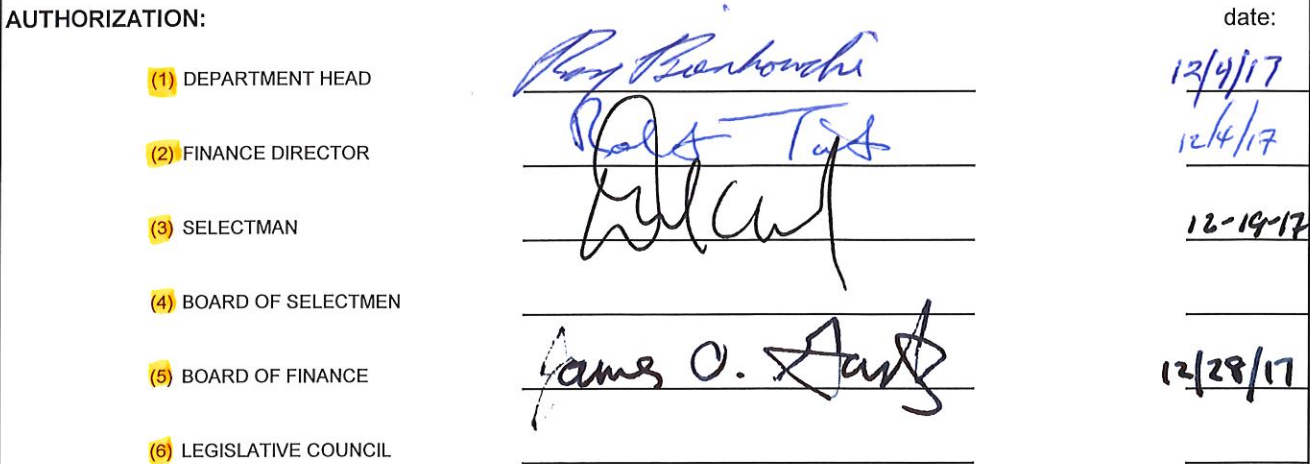 AUTHORIZATION: date:
(1) DEPARTMENT HEAD Ray Bienkowski 12/4/17
(2) FINANCE DIRECTOR Robert Tait 12/4/17
(3) SELECTMAN 12-19-17
(4) BOARD OF SELECTMEN
(5) BOARD OF FINANCE James O. 12/28/17
(6) LEGISLATIVE COUNCIL